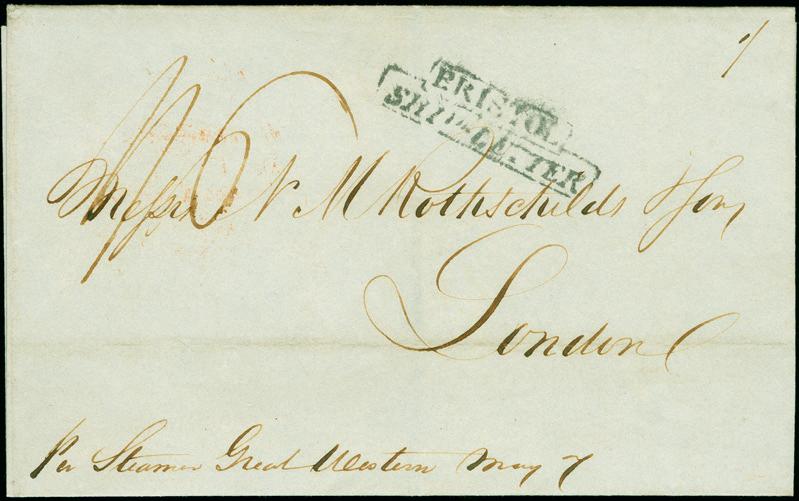 1/
BRISTOL
SHIP LETTER
1/6
Messrs N M Rothschilds & Sons
London
Per Steamer Great Western May 7